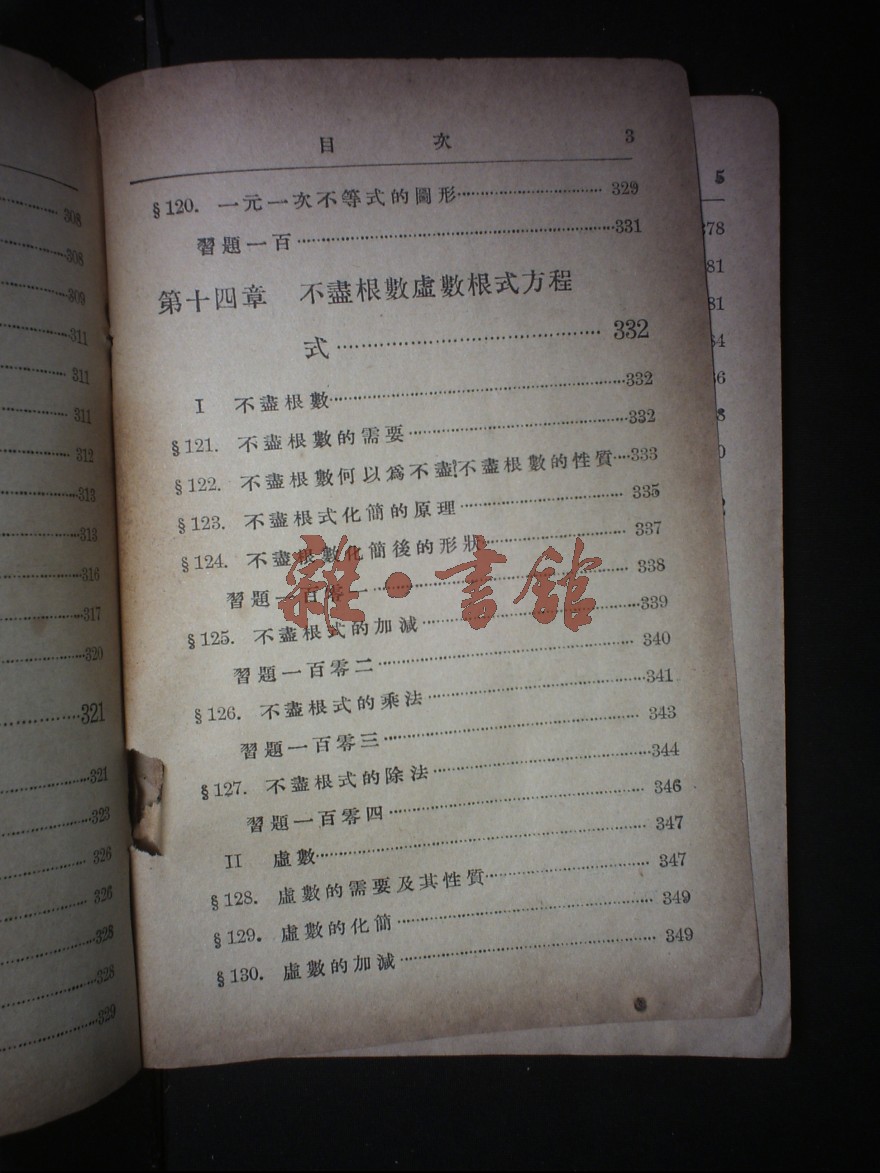 308
308
309
311
311
311
312
313
313
316
317
320
321
321
323
326
326
328
328
329
目 次 3
§120. 一元一次不等式的圖形 329
習題一百 331
第十四章 不盡根數虛數根式方程
式 332
I 不盡根數 332
§121. 不盡根數的需要 332
§122. 不盡根數何以爲不盡?不盡根數的性質 333
§123. 不盡根式化簡的原理 335
§124. 不盡根數化簡後的形狀 337
習題一百零一 338
§125. 不盡根式的加減 339
習題一百零二 340
§126. 不盡根式的乘法 341
習題一百零三 343
§127. 不盡根式的除法 344
習題一百零四 346
II 虛數 347
§128. 虛數的需要及其性質 347
§129. 虛數的化簡 349
§130. 虛數的加減 349
雜·書館
5
378
81
81
34
36
8
0
2